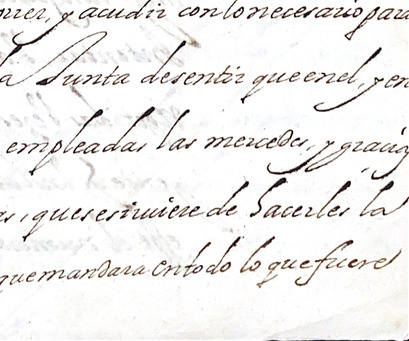 orrer, y acudir con lo necesario para
la Junta de sentir que en el, y en
empleadas las mercedes, y gracias
as, que se sirviere de hacerles la
que mandara en todo lo que fuere